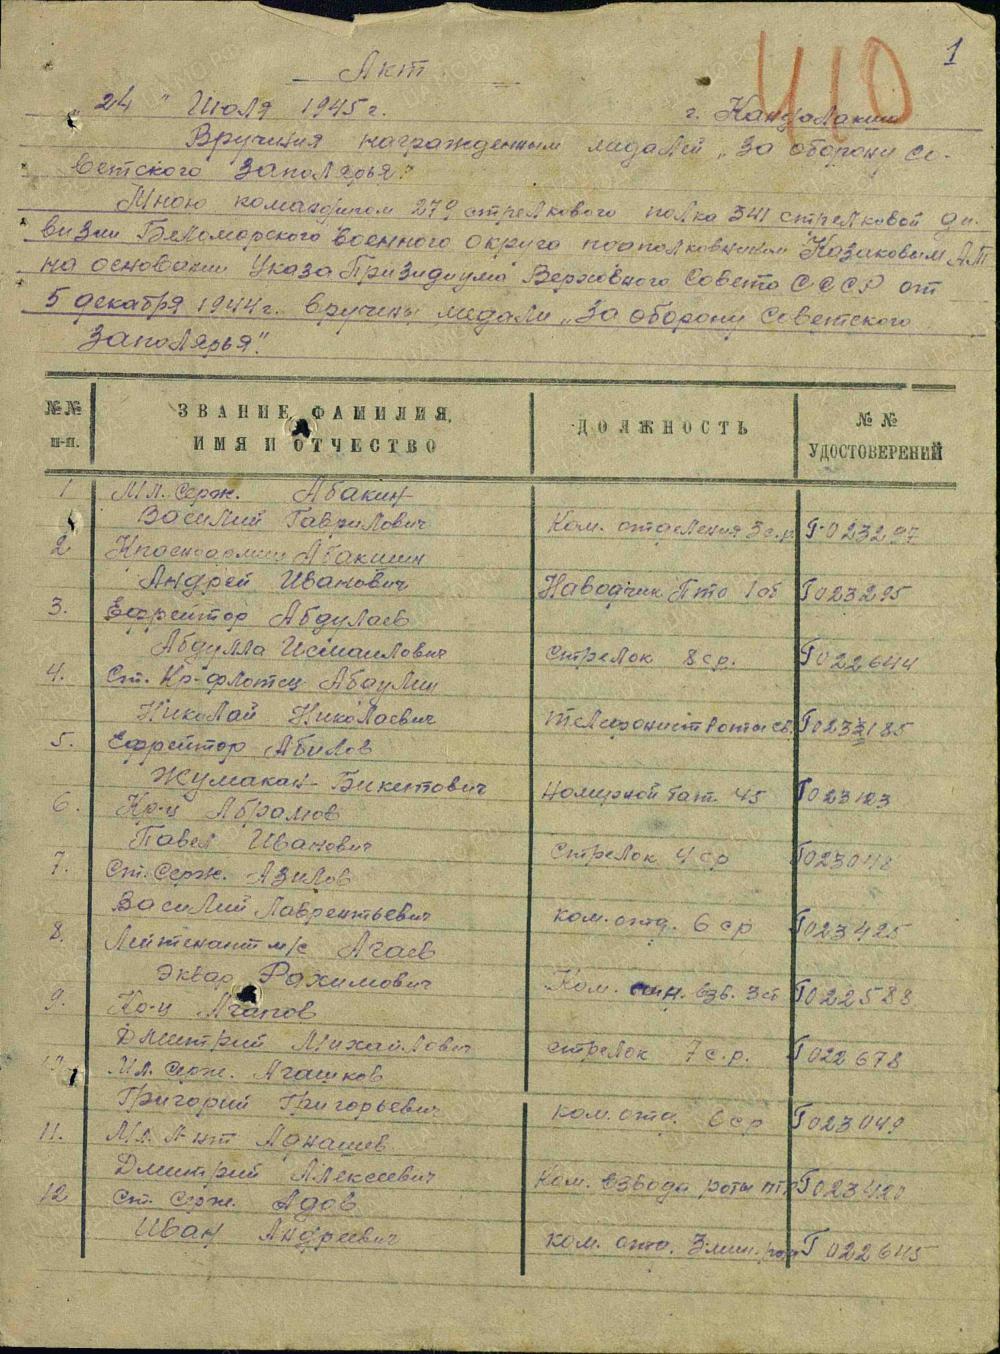 1
410
Акт
„24" Июля 1945 г. г. Кандалакша
Вручения награжденным медалей „За оборону Со-
ветского Заполярья"
Мною командиром 279 стрелкового полка 341 стрелковой ди-
визии Беломорского военного округа подполковником Казаковым А.Т
на основании Указа Призидиума Верховного Совета СССР от
5 декабря 1944 г. вручены медали „За оборону Советского
Заполярья".
№№ п-п. ЗВАНИЕ, ФАМИЛИЯ, ИМЯ И ОТЧЕСТВО ДОЛЖНОСТЬ №№ УДОСТОВЕРЕНИЙ
1 Мл. серж. Абакин
Василий Гаврилович Ком. отделения 3 с.р. Г-023297
2 Красноармеец Абакшин
Андрей Иванович Наводчик Пто 1 сб Г023295
3. Ефрейтор Абдулаев
Абдулла Исмаилович стрелок 8 ср. Г022644
4. Ст. Кр-флотец Абаулин
Николай Николаевич телефонист роты св. Г023185
5. Ефрейтор Абилов
Жумакан Бикитович номерной бат. 45 Г023123
6. Кр-ц Абрамов
Павел Иванович Стрелок 4 ср Г023048
7. Ст. Серж. Азилов
Василий Лаврентьевич ком. отд. 6 ср Г023425
8. Лейтенант м/с Агаев
Эквар Рахимович Ком. взв. Г022588
9. Кр-ц Агапов
Дмитрий Михайлович стрелок 7 с.р. Г022678
Мл. серж. Агашков
Григорий Григорьевич ком. отд. 6 ср Г023049
11. Мл. л-нт Аднашев
Дмитрий Алексеевич Ком. взвода роты птр Г023420
12 ст. серж. Адов
Иван Андреевич ком. отд. Змин. рот Г 022645